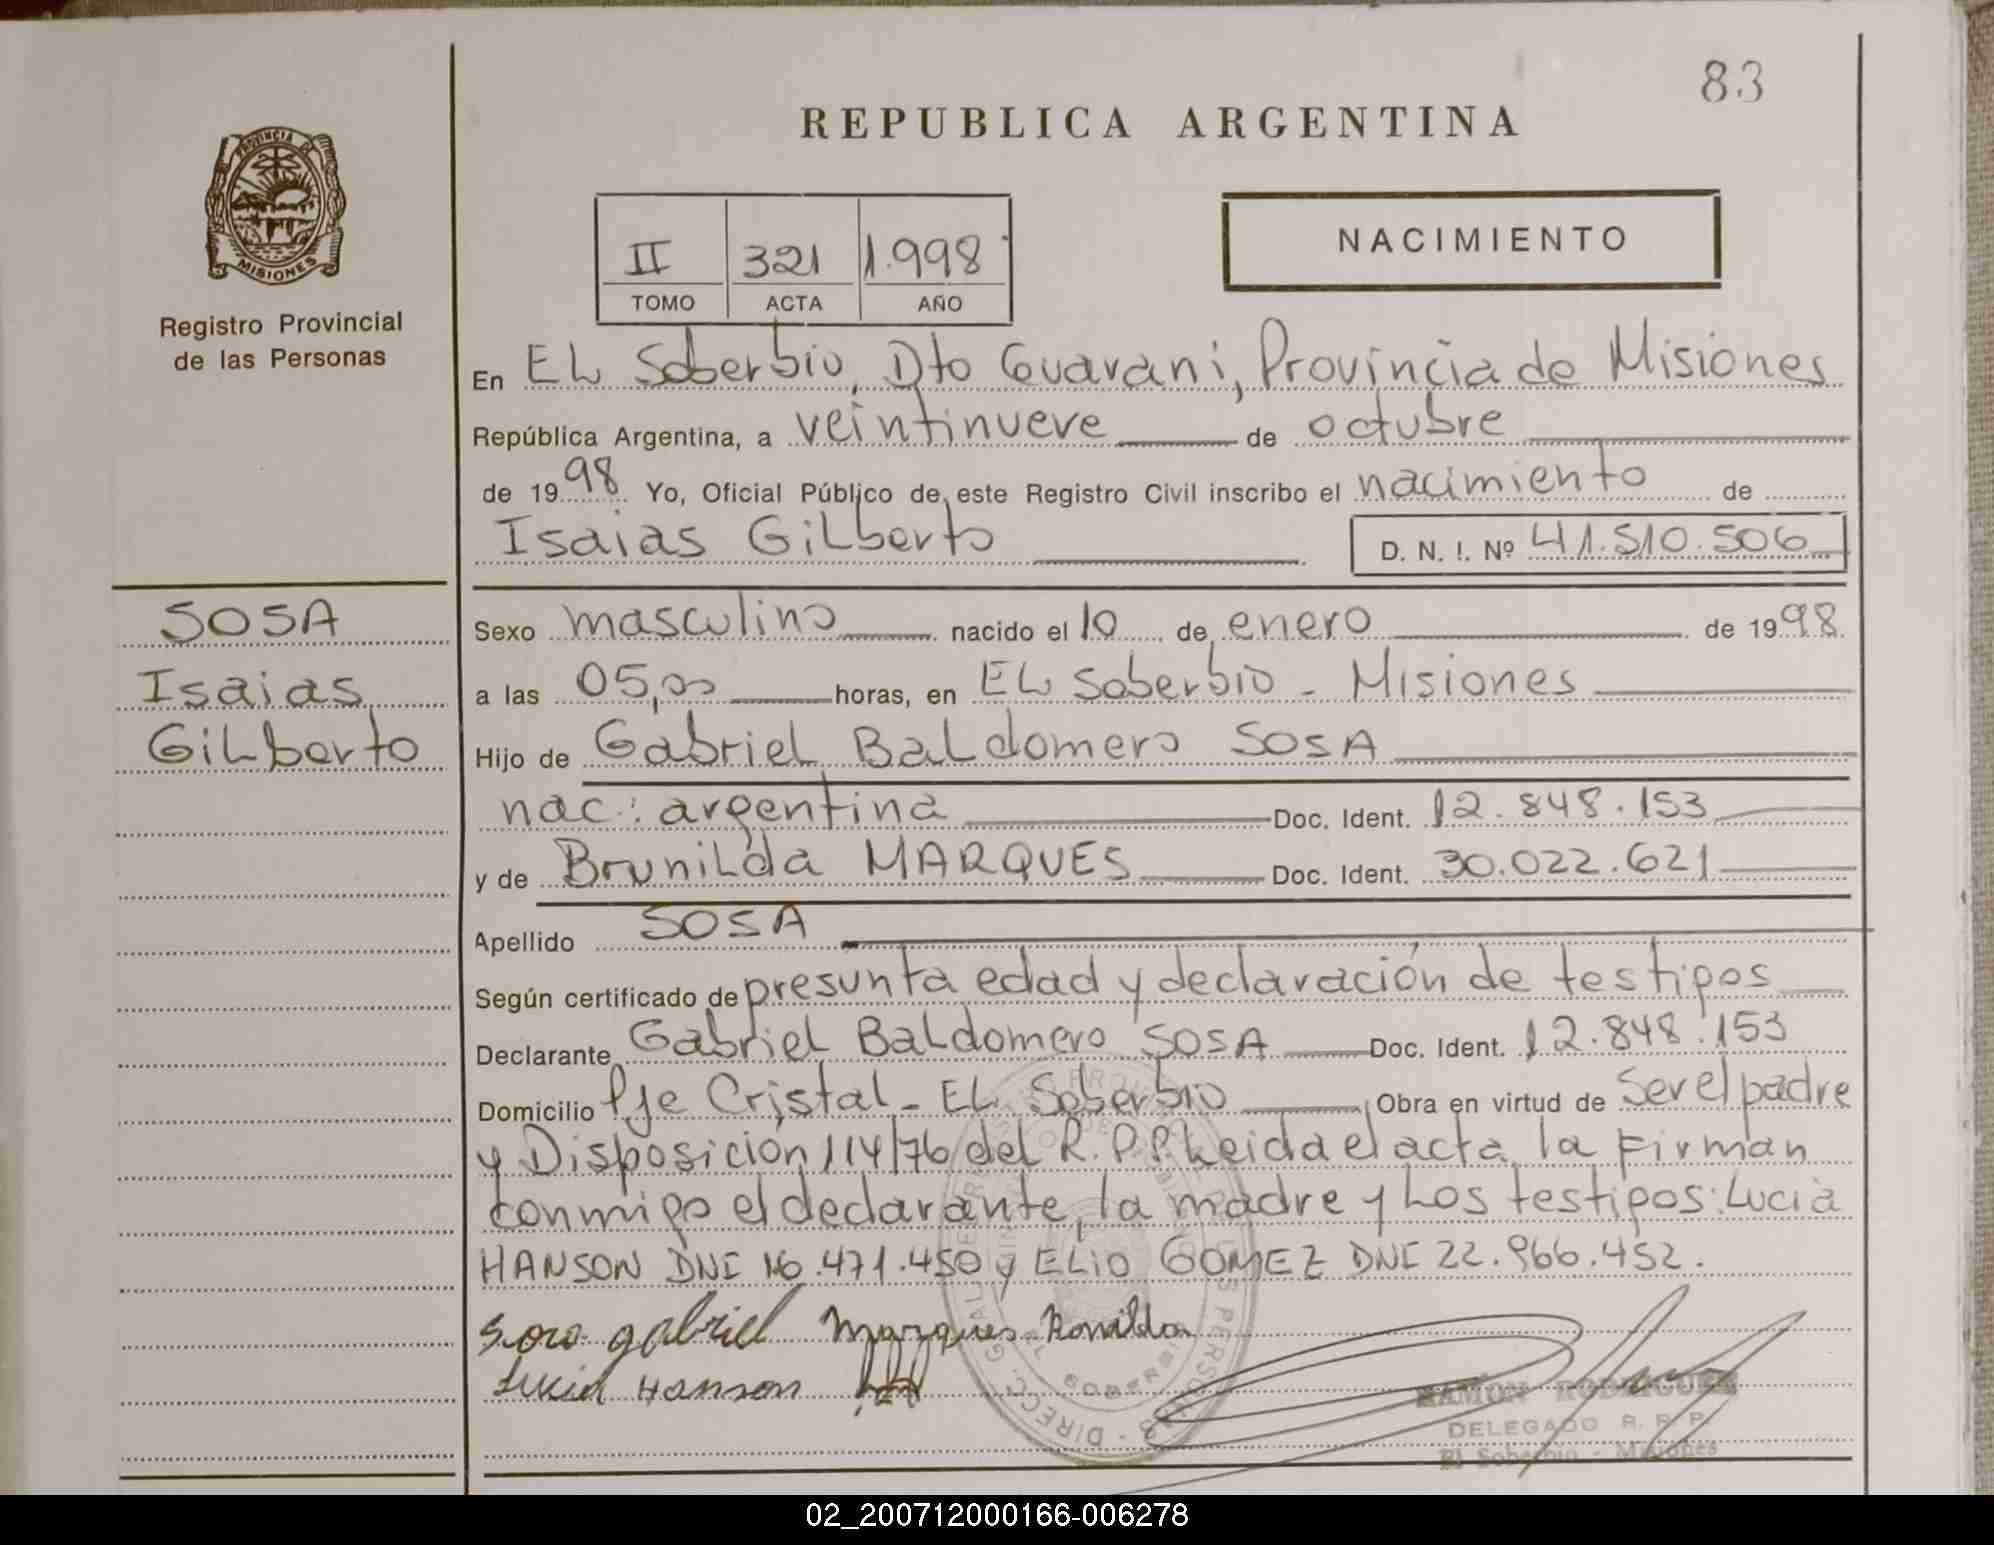 83
REPUBLICA ARGENTINA
PROVINCIA DE
MISIONES
Registro Provincial
de las Personas
II 321 1.998
TOMO ACTA AÑO
NACIMIENTO
En EL Soberbio, Dto Guarani, Provincia de Misiones
República Argentina, a veintinueve de octubre
de 1998 Yo, Oficial Público de este Registro Civil inscribo el nacimiento de
Isaias Gilberto D. N. I. Nº 41.510.506
SOSA
Isaias
Gilberto
Sexo masculino nacido el 10 de enero de 1998
a las 05,00 horas, en EL Soberbio - Misiones
Hijo de Gabriel Baldomero SOSA
nac: argentina Doc. Ident. 12.848.153
y de Brunilda MARQUES Doc. Ident. 30.022.621
Apellido SOSA
Según certificado de presunta edad y declaración de testigos
Declarante Gabriel Baldomero SOSA Doc. Ident. 12.848.153
Domicilio Pje Cristal - EL Soberbio Obra en virtud de ser el padre
y Disposición 114/76 del R.P.P. Leida el acta, la firman
conmigo el declarante, la madre y Los testigos: Lucia
HANSON DNI 16.471.450 y ELIO GOMEZ DNI 22.966.452.
Sosa gabriel Marques
Lucia Hanson
RAMON RODRIGUEZ
DELEGADO R. P. P.
El Soberbio - Misiones
02_200712000166-006278